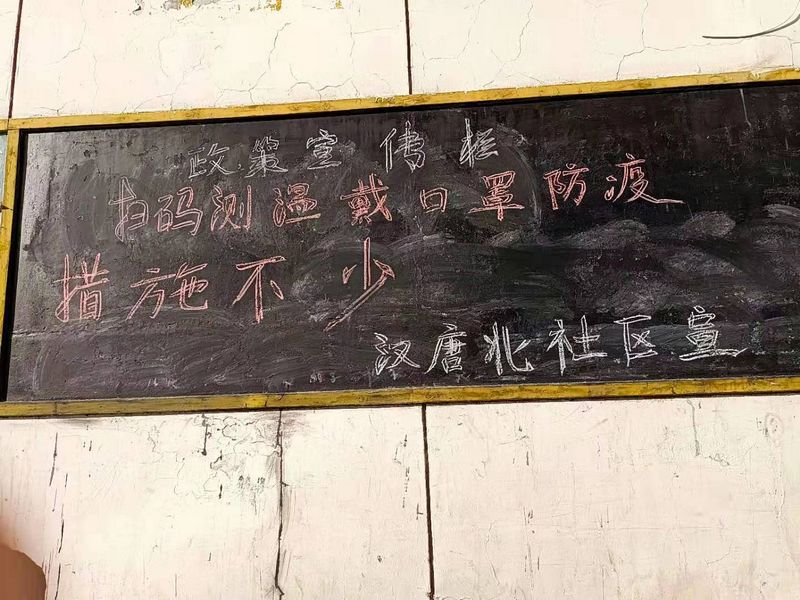 政策宣传栏
扫码测温戴口罩防疫
措施不少
汉唐北社区宣